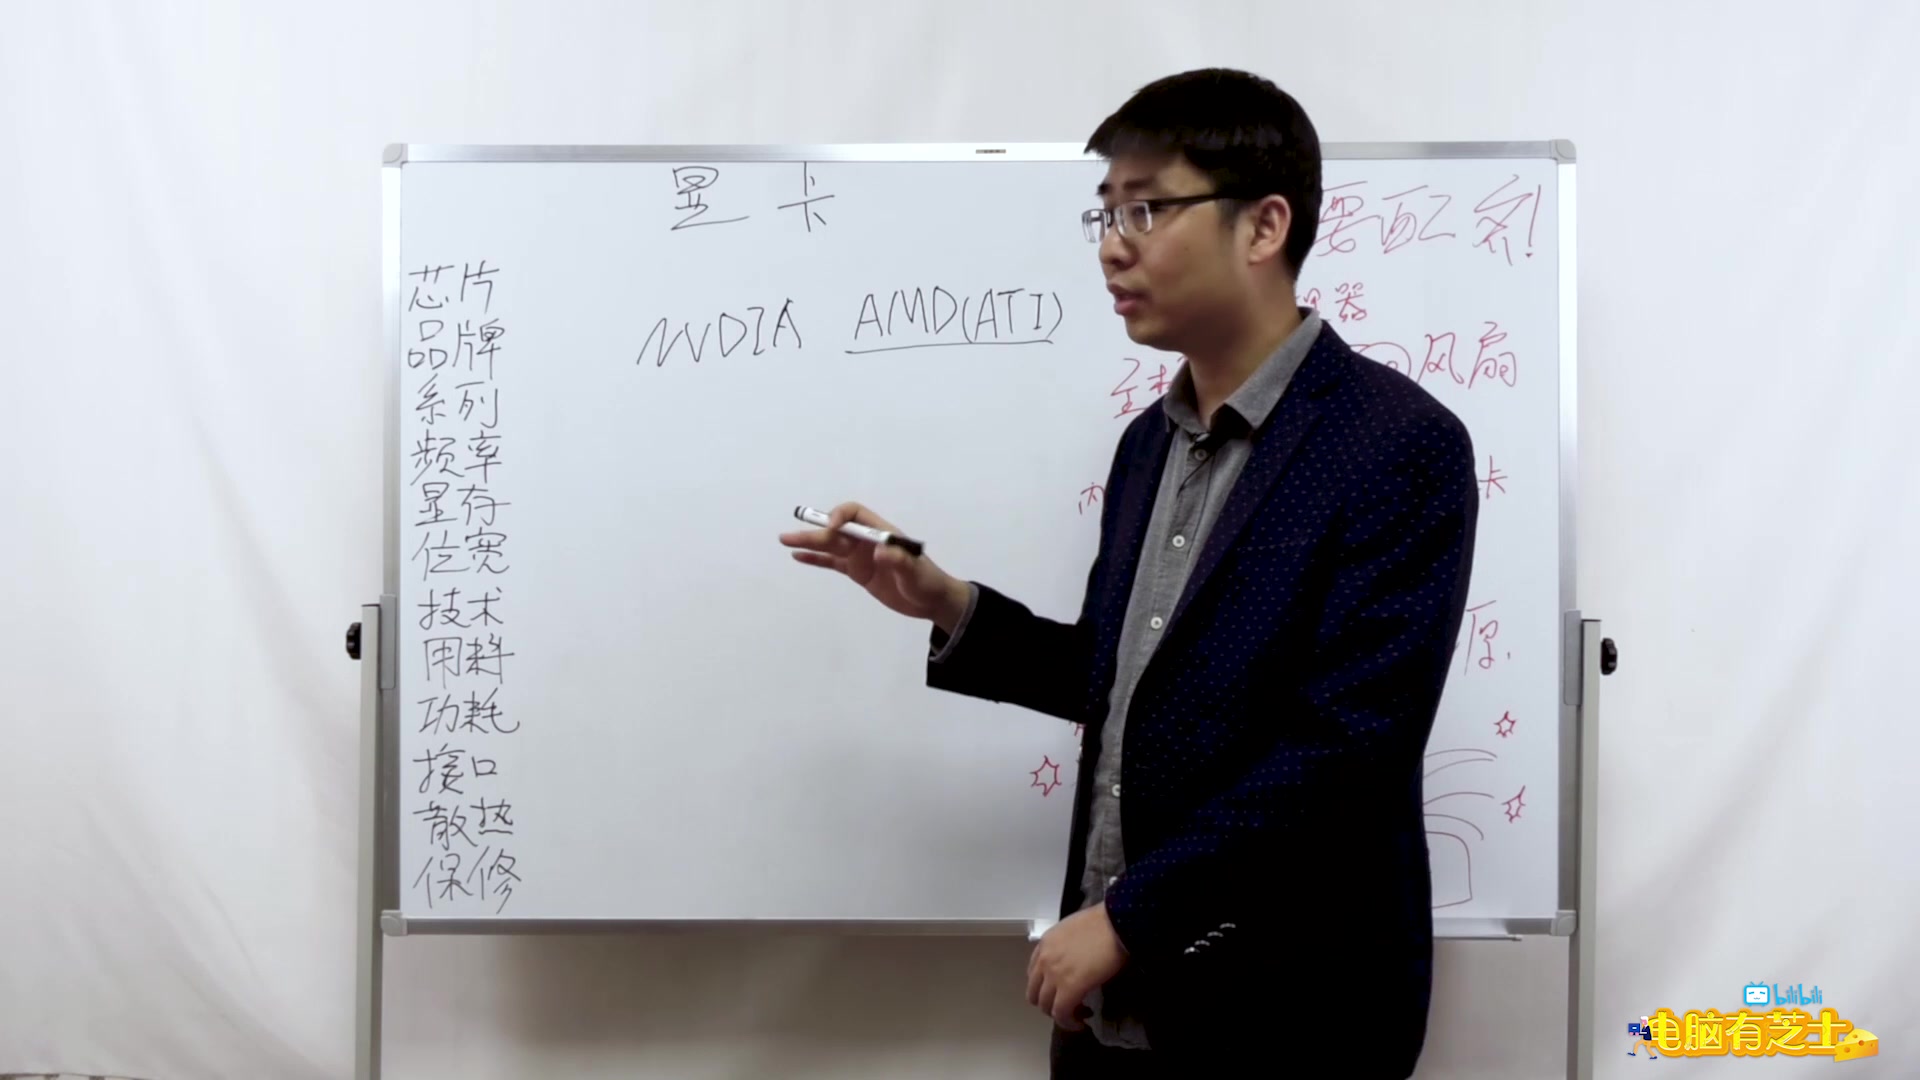 显卡
芯片
品牌
系列
频率
显存
位宽
技术
用料
功耗
接口
散热
保修
NVDIA AMD(ATI)
要配齐!
器
主 风扇
内 卡
源
bilibili
电脑有芝士